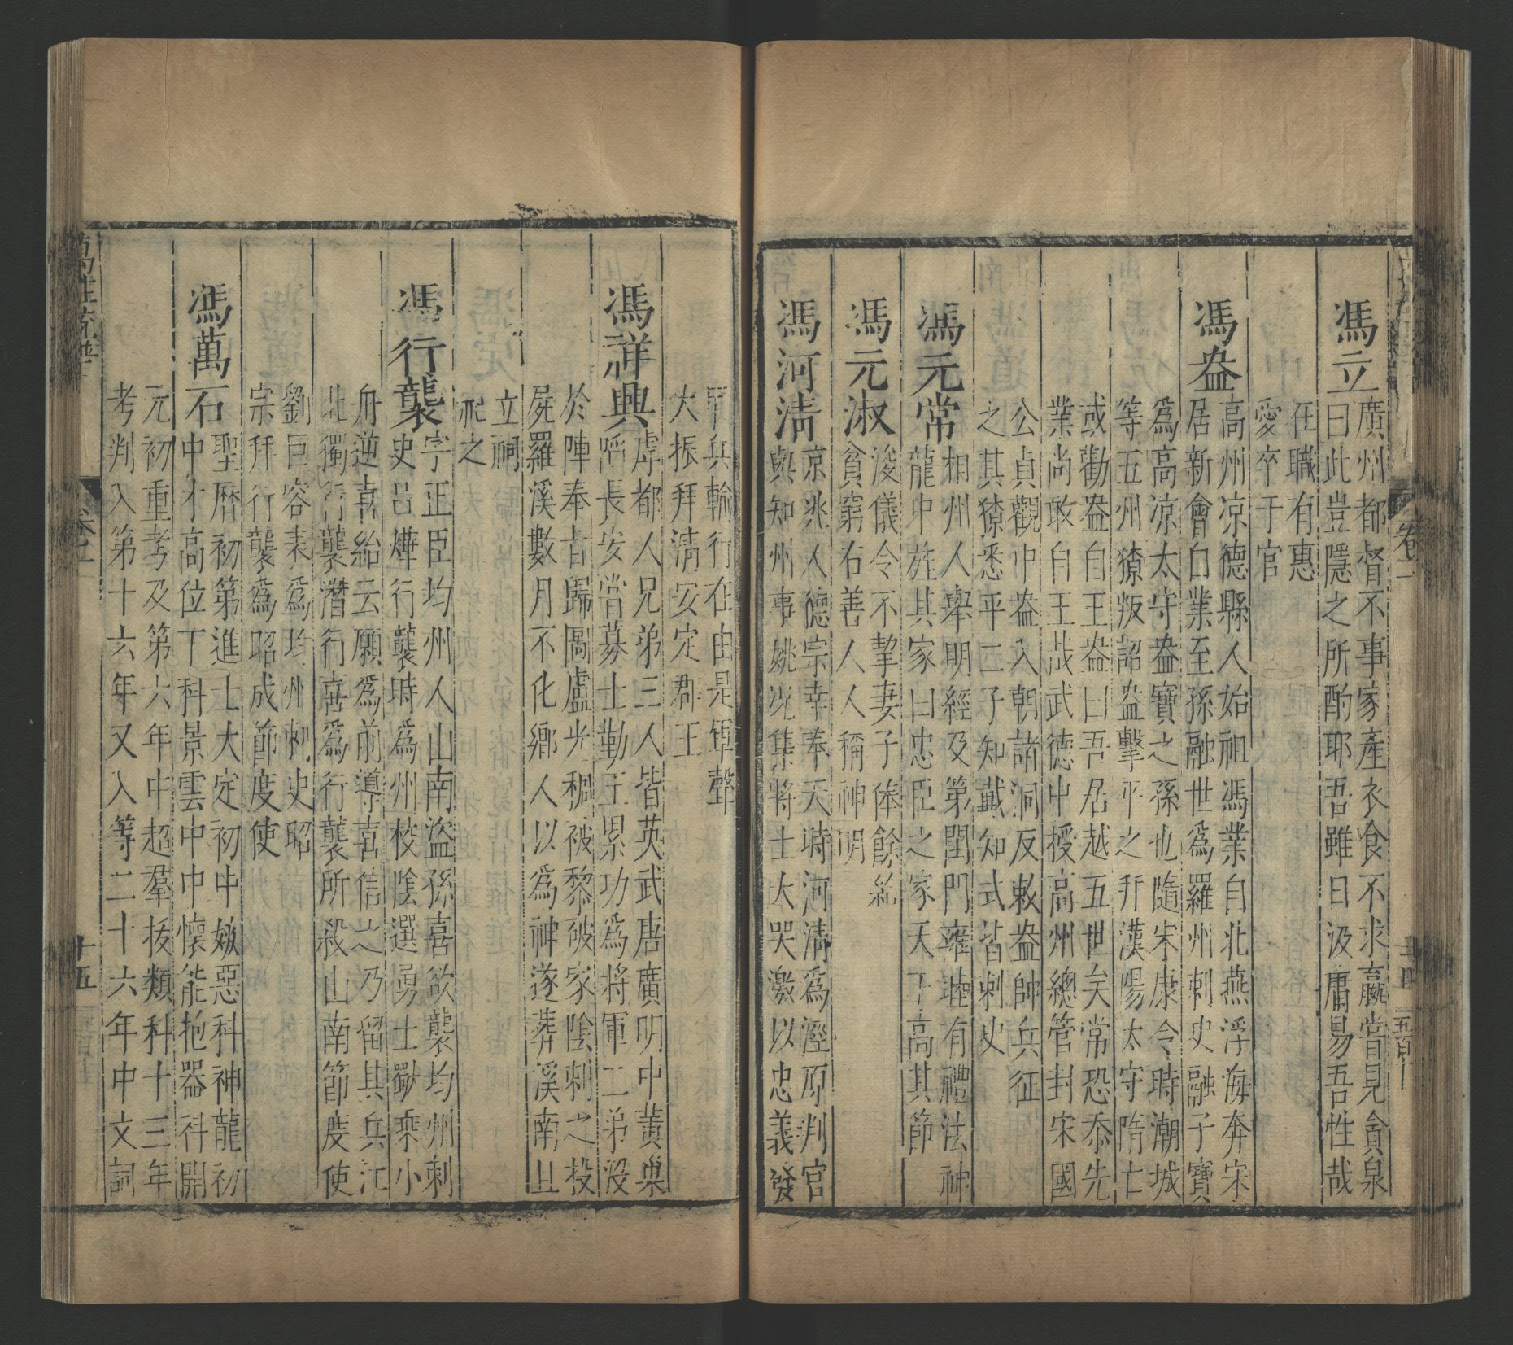 馮立
廣州都督不事家產衣食不求嬴嘗見貪泉
曰此豈隱之所酌耶吾雖日汲庸易吾性哉
在職有惠
愛卒于官
馮盎
高州凉德縣人始祖馮業自北燕浮海奔宋
居新會白業至孫融世為羅州刺史融子寶
為高涼太守盎寶之孫也隨宋康令時潮城
等五州獠叛詔盎擊平之拜漢陽太守隋亡
或勸盎自王盎曰吾居越五世矣常恐忝先
業尚敢自王哉武德中授高州總管封宋國
公貞觀中盎入朝諸洞反敕盎帥兵征
之其獠悉平二子知戴知式皆刺史
馮元常
相州人舉明經及第閨門雍睦有禮法神
龍中旌其家曰忠臣之家天下高其節
馮元淑
浚儀令不挈妻子俸餘給
貧窮右善人人稱神明
馮河清
京兆人德宗幸奉天時河清為涇原判官
與知州事姚况集將士大哭激以忠義發
甲兵輸行在由是軍聲
大振拜清安定郡王
馮祥興
虔都人兄弟三人皆英武唐廣明中黃巢
䧟長安當募士勤王累功為將軍二弟没
於陣奉旨歸圖盧光稠被黎破家陰刺之投
屍羅溪數月不化鄉人以為神遂葬溪南且
立祠
祀之
馮行襲
字正臣均州人山南盗孫喜欲襲均州刺
史呂燁行襲時為州校陰選勇士獄乘小
舟逆喜紿云願為前導喜信之乃留其兵江
北獨行襲潛行喜為行襲所殺山南節度使
劉巨容表為均州刺史昭
宗拜行襲為昭成節度使
馮萬石
聖曆初第進士大定初中嫉惡科神龍初
中才高位下科景雲中中懷能抱器科開
元初重考及第六年中超羣拔類科十三年
考判入第十六年又入等二十六年中文詞
萬姓統譜
卷一
十五